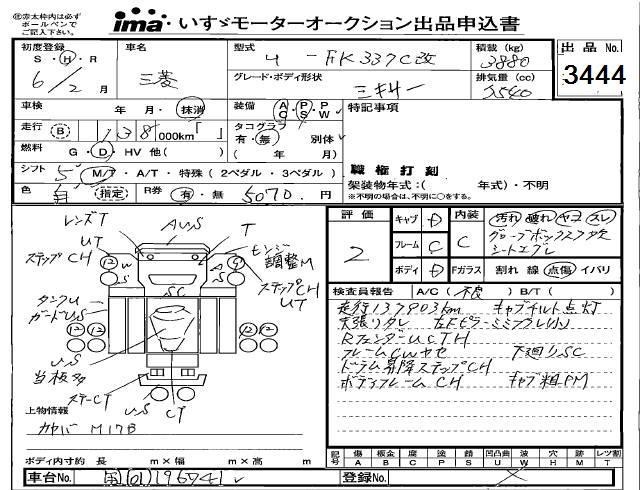 ㊟赤太枠内は必ず
ボールペンで
ご記入下さい。
ima・いすゞモーターオークション出品申込書
初度登録 車名 型式 U-FK337C改 積載(kg) 3880 出品No.
S・H・R 6/2月 三菱 グレード・ボディ形状 ミキサー 排気量(cc) 7540 3444
車検 年 月・抹消 装備 A・P・P C S W 特記事項
走行 B 138000km「 」 タコグラフ 有・無 別体
燃料 G・D・HV 他( ) ( 年 月)
シフト 5 M/T・A/T・特殊(2ペダル・3ペダル) 職権打刻
架装物年式:( 年式)・不明
色 白 指定 R券 有・無 5070円 ※不明の場合は、不明に○をする。
評価 2 キャブ D 内装 C 汚れ 破れ ヤコ スレ
フレーム C シートエグレ
ボディ D Fガラス 割れ 線 点傷 イバリ
検査員報告 A/C(不良) B/T( )
走行137903km キャブチルト点灯
天張リタレ
RフェンダーUCTH
フレームCWヤセ 下廻りSC
ドラム昇降ステップCH
ボディフレームCH キャブ粗PM
レンズT AUS T
UT
ステップCH W S SC A S 調整M
ステップCH
UT
タンクU
ガードUS
US
当板多
ステーCT US CT
上物情報
カヤバ M17B
ボディ内寸約 長 m×幅 m×高 m
記号 傷 A 板金 B 腐 C 塗 P 錆 S 凹凸曲 U 波 W 穴 H 柄 M レツ割 T
車台No. (01)196741 登録No.